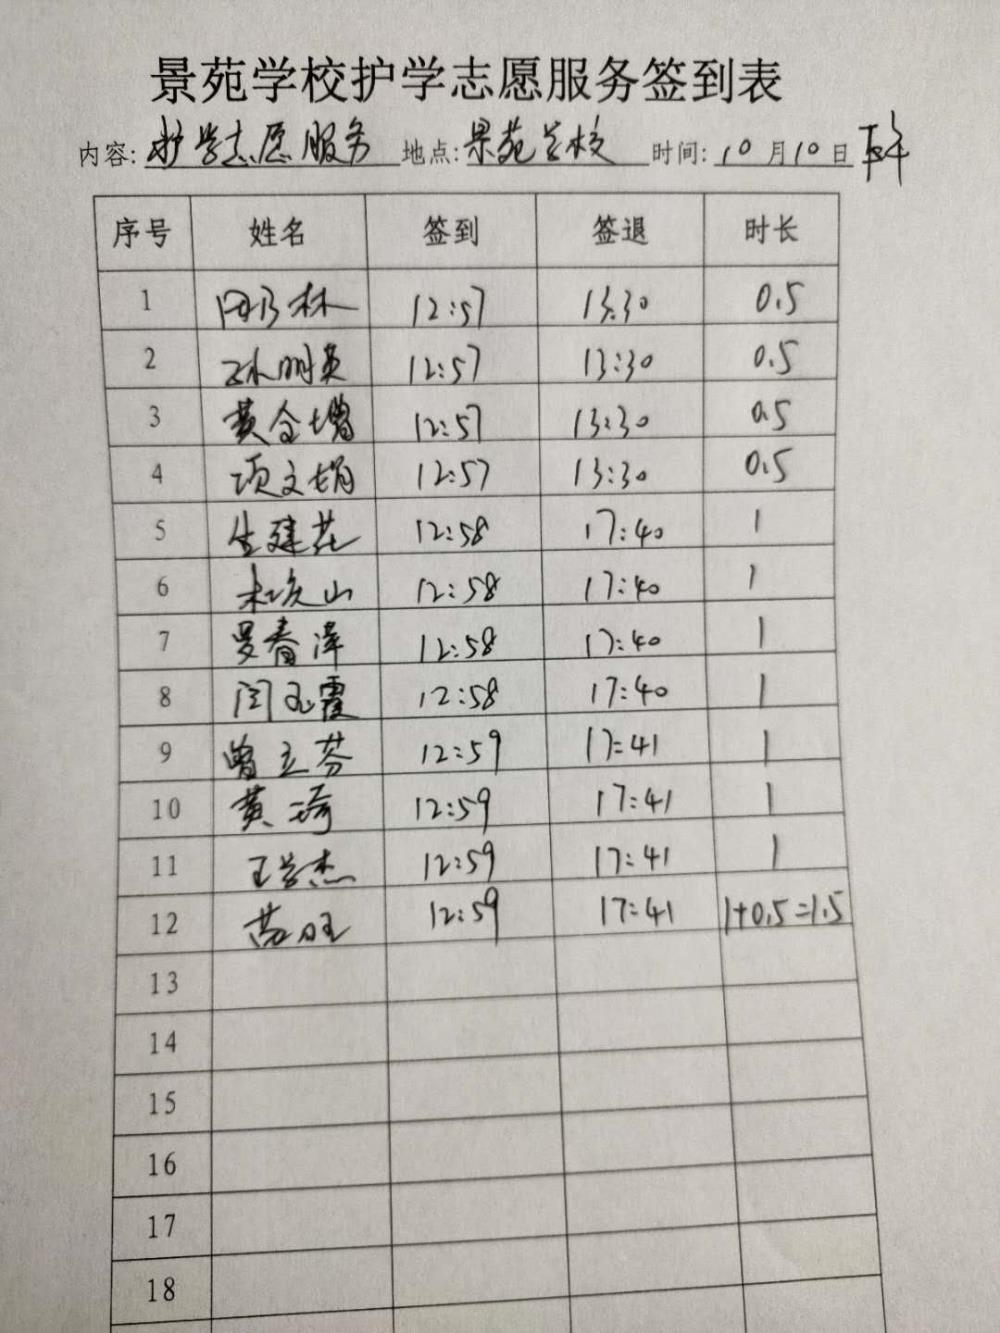 景苑学校护学志愿服务签到表
内容: 护学志愿服务 地点: 景苑学校 时间: 10月10日 下午
序号 姓名 签到 签退 时长
1 林 12:57 13:30 0.5
2 孙明英 12:57 13:30 0.5
3 黄全增 12:57 13:30 0.5
4 项文娟 12:57 13:30 0.5
5 生建花 12:58 17:40 1
6 山 12:58 17:40 1
7 春泽 12:58 17:40 1
8 闫玉霞 12:58 17:40 1
9 曾立芬 12:59 17:41 1
10 黄琦 12:59 17:41 1
11 王学杰 12:59 17:41 1
12 旺 12:59 17:41 1+0.5=1.5
13
14
15
16
17
18